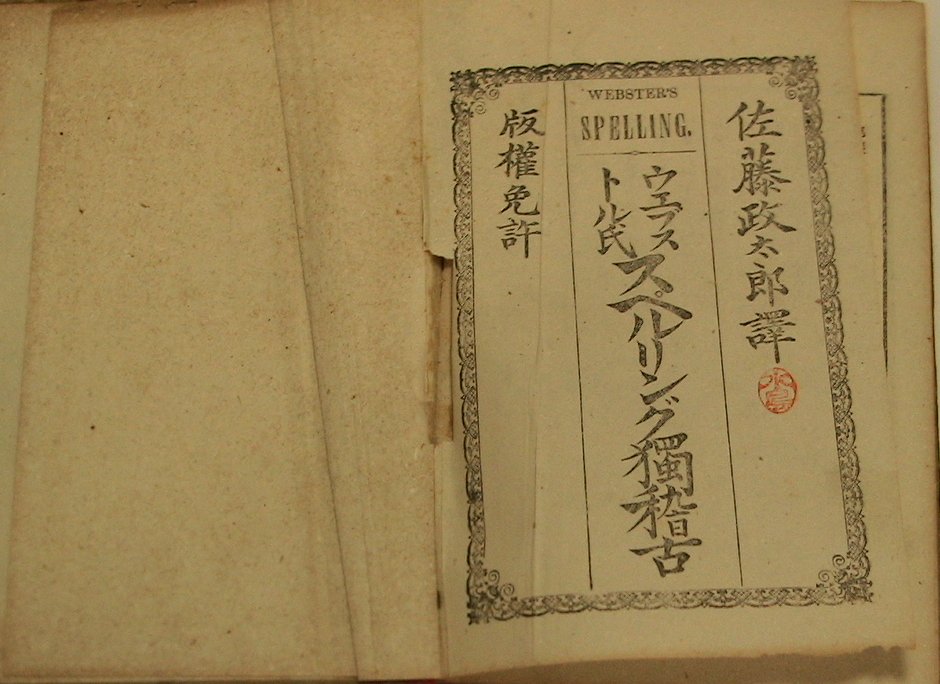 佐藤政太郎譯
WEBSTER'S
SPELLING.
ウエブス
トル氏
スペルリング獨稽古
版權免許